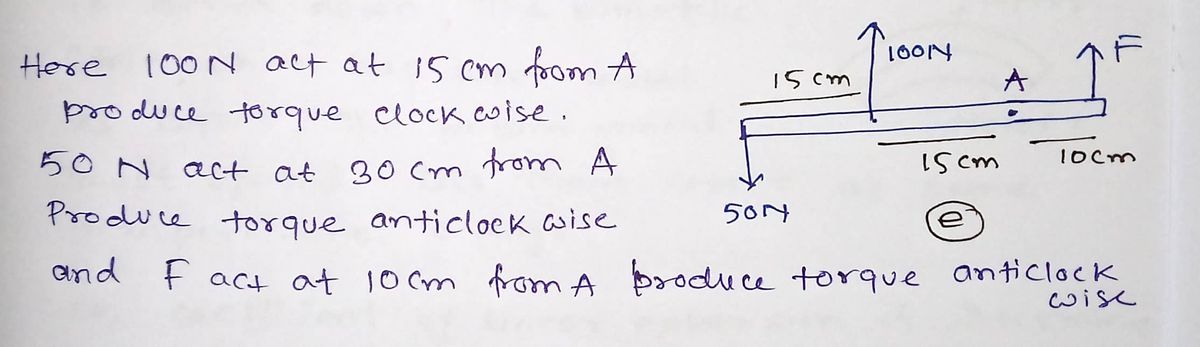 Here 100N act at 15 cm from A
produce torque clockwise.
50 N act at 30 cm from A
Produce torque anticlockwise
and F act at 10 cm from A produce torque anticlock
wise
100N
F
15 cm
A
15 cm
10cm
50N
e